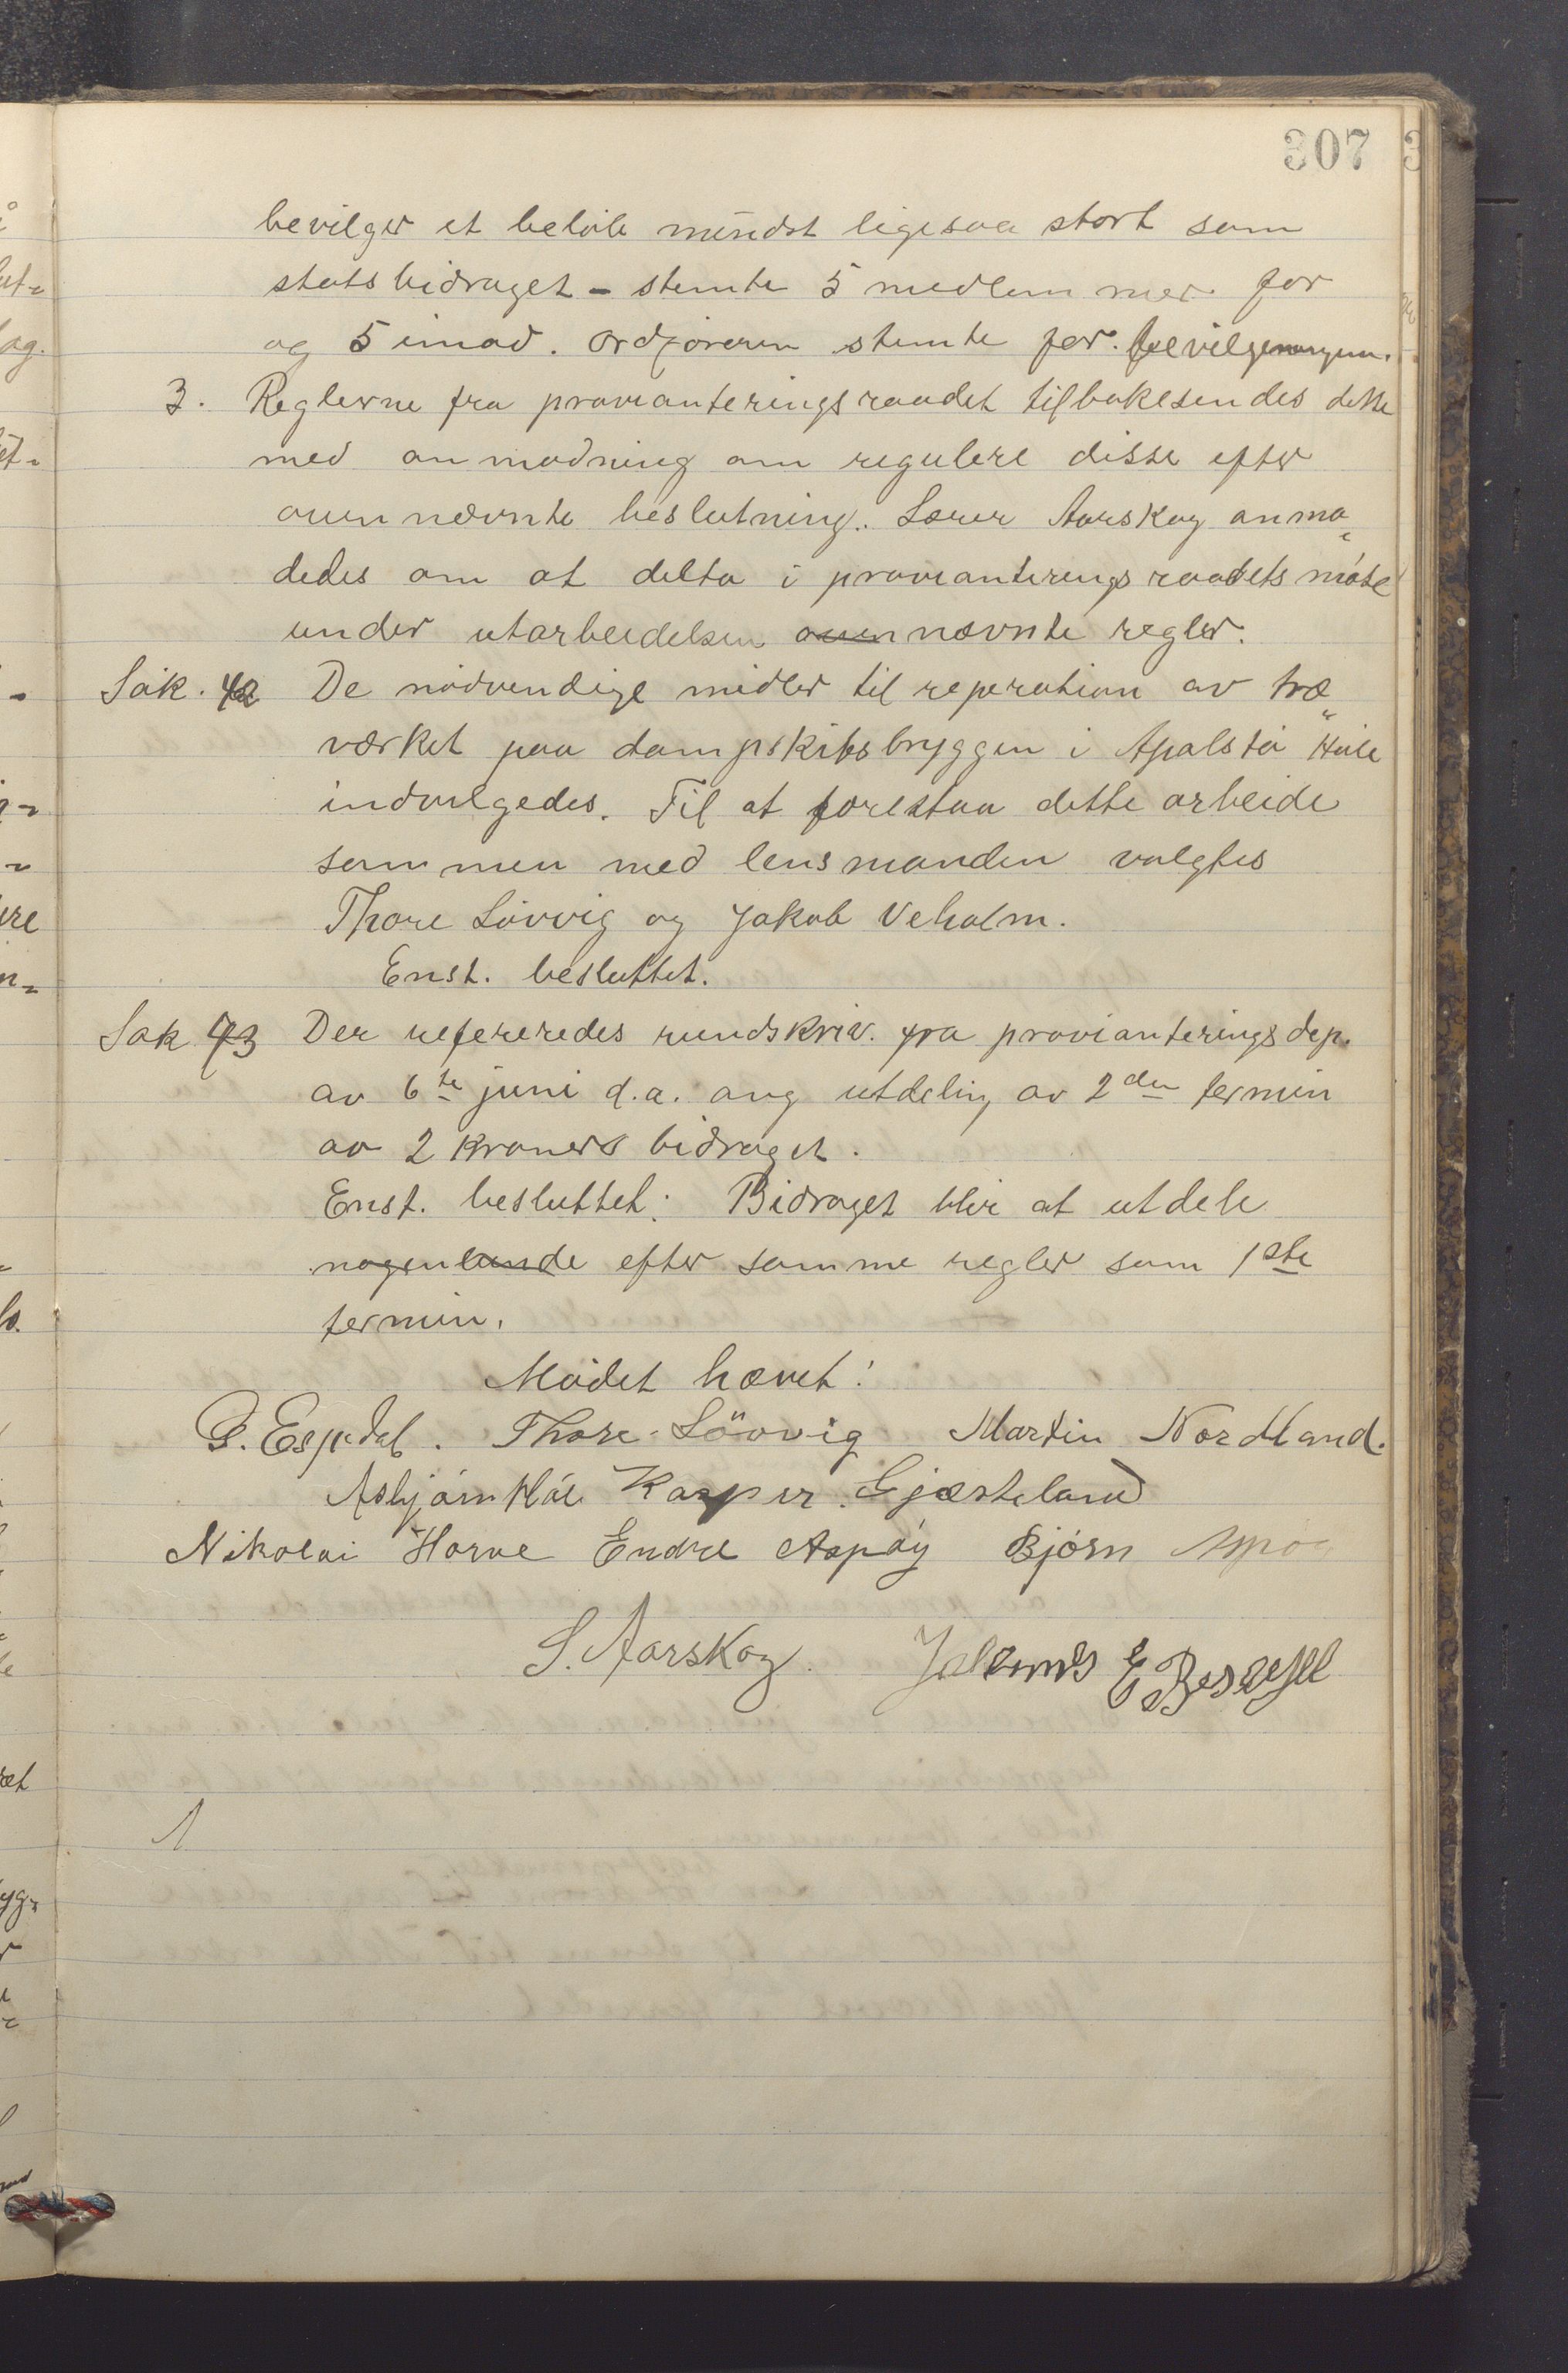 307
bevilger et beløb mindst ligesaa stort som
statsbidraget - stemte 5 medlemmer for
og 5 imod. Ordføreren stemte for. bevilgningen.
3. Reglerne fra provianteringsraadet tilbakesendes dette
med anmodning om regulere disse efter
ouennævnte beslutning. Lærer Aarskog anmo„
dedes om at delta i provianteringsraadets møte
under utarbeidelsen ouennævnte regler.
Sak. 42 De nødvendige midler til reperation av træ„
værket paa dampskibsbryggen i Apalstø
indvilgedes. Til at forestaa dette arbeide
sammen med lensmanden valgtes
Thore Løvvig og Jakob Veholm.
Enst. besluttet.
Sak 43 Der refereredes rundskriv. fra provianteringsdep.
av 6te juni d.a. ang utdeling av 2den termin
av 2 kroners bidraget.
Enst. besluttet: Bidraget blir at utdele
nogenlunde efter samme regler som 1ste
termin.
Mødet hævet!
G. Espedal. Thore Lövvig Martin Nordland.
Asbjørn Kasper Gjæsteland
Nikolai Horve Endre Aspøy Bjørn Aspøy
S. Aarskog. Johannes E